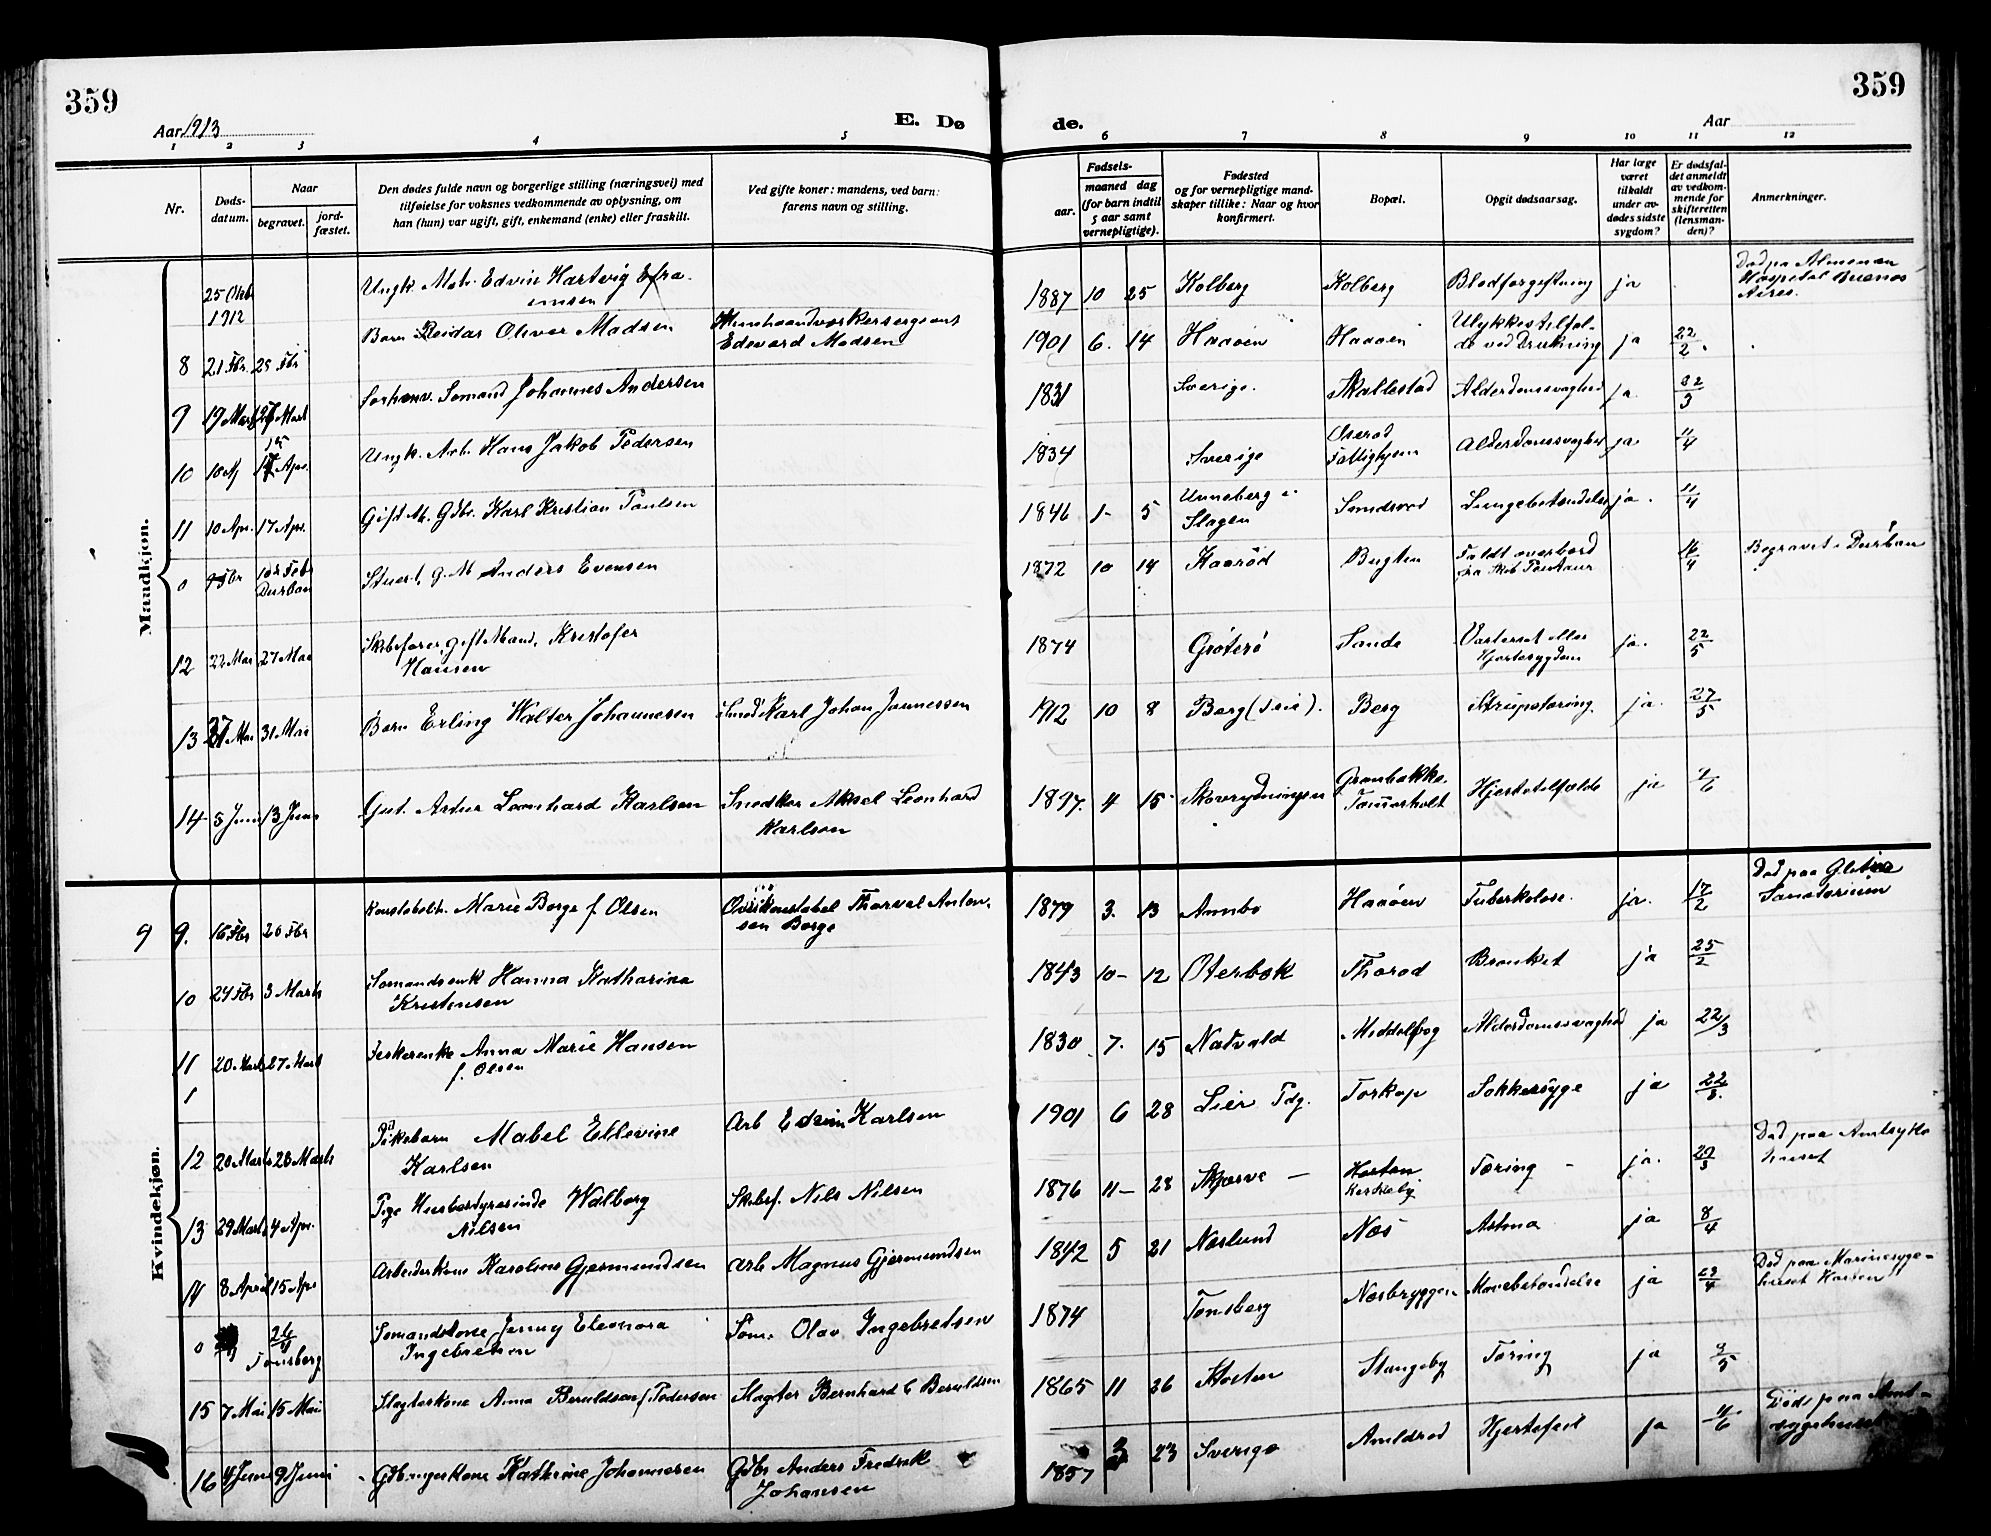 359
359
Aar 1913
E. Dø
de.
Aar
1 2 3 4 5 6 7 8 9 10 11 12
Nr.
Døds-
datum.
Naar
begravet.
jord-
fæstet.
Den dødes fulde navn og borgerlige stilling (næringsvei) med
tilføielse for voksnes vedkommende av oplysning, om
han (hun) var ugift, gift, enkemand (enke) eller fraskilt.
Ved gifte koner: mandens, ved barn:
farens navn og stilling.
Fødsels-
aar.
maaned dag
(for barn indtil
5 aar samt
vernepligtige).
Fødested
og for vernepligtige mand-
skaper tillike: Naar og hvor
konfirmert.
Bopæl.
Opgit dødsaarsag.
Har læge
været
tilkaldt
under av-
dødes sidste
sygdom?
Er dødsfal-
det anmeldt
av vedkom-
mende for
skifteretten
(lensman-
den)?
Anmerkninger.
Mandkjøn.
25 Okt 1912 Ungk. Mat. Edvin Hartvig Efra-
imsen 1887 10 25 Kolberg Kolberg Blodforgiftning ja Død paa Almenen
Hospital Buenos
Aires.
8 21 Fbr. 25 Fbr Barn Reidar Oliver Madsen Minehaandverkersergeant
Edevard Madsen 1901 6. 14 Haaøen Haaøen Ulykkestilfæl-
de ved Drukning ja 22/2.
9 19 Marts 27 Marts Forhenv. Sømand Johannes Andersen 1831 Sverige. Skallestad Alderdomssvaghed ja. 22/3
10 10 Apr. Ungk. Arb. Hans Jakob Pedersen 1834 Sverige Oserød
Fattighjem Alderdomssvaghed ja. 11/4
11 10 Apr. 17 Apr. Gift M. Gdbr. Karl Kristian Paulsen 1846 1- 5 Unneberg i
Slagen Sundsrød Lungebetændelse ja. 11/4
0 Fbr 10de Febr
Durban Stuert, g. M Anders Evensen 1872 10 14 Kaarød Bugten Faldt overbord
fra 16/4 Begravet i Durban
12 22 Mai 27 Mai Skibsfører, gift Mand, Kristofer
Hansen 1874 Grøterø Sande Vatersot eller
Hjertesygdom ja. 22/5
13 27 Mai 31 Mai Barn Erling Walter Johannesen Smed Karl Johan Jonnessen 1912 10 8 Berg (Teie). Berg Strupetæring. ja. 27/5
14 5 Juni 13 Juni Gut. Artur Leonhard Karlsen Snedker Aksel Leonhard
Karlsen 1897. 4 15 Skovrydningen Grønbakke.
Tømmerholt Hjertetilfælde ja 9/6
Kvindekjøn.
9 9. 16 Fbr 20 Fbr Konstabelh. Marie Borge f. Olsen Overkonstabel Thorval Anton-
sen Borge 1879 3. 13 Annbo Haaøen Tuberkolose. ja. 17/2 Død paa Glitre
Sanatorium
10 24 Fbr 3 Marts Sømandsenk Hanna Katharina
Kristensen 1843 10- 12 Oterbæk Thorød Bronket ja 25/2
11 20 Marts 27 Marts Fiskerenke Anna Marie Hansen
f. Olsen 1830 7. 15 Natvald Middelbog Alderdomssvaghed ja 22/3
1
12 20 Marts 28 Marts Pikebarn Mabel Ellevine
Karlsen Arb Edvin Karlsen 1901 6 28 Lier Pdg. Torkop Sokkersyge ja 22/3.
13 29 Marts 4 Apr. Pige Husbestyrerinde Walborg
Nilsen Skibsf. Nils Nilsen 1876 11- 28 Skjerve - Horten
Kirkeby Tæring - ja. 29/3 Død paa Amtsyke
huset
14 8 April 15 Apr Arbeiderkone Karoline Gjermundsen Arb Magnus Gjermundsen 1842 5 21 Næslund Næs Astma ja 8/4
0 26/4
Tønsberg Sømandskone Jenny Eleonora
Ingebretsen Søm. Olav Ingebretsen 1874 Tønsberg Næsbryggen Mavebetændelse ja 23/4 Død paa Marinesyge-
huset Horten
15 7 Mai 15 Mai Slagterkone Anna Beruldsen f. Pedersen Slagter Bernhard C Beruldsen 1865 11 26 Horten Stangeby Tæring ja 9/5
16 4 Juni 9 Juni Gdb. Kathrine Johannesen Gdbr Anders Fredrek
Johansen 1857 3 23 Sverige Amldrød Hjertefeil ja 4/6 Døde paa Amt-
sygehuset